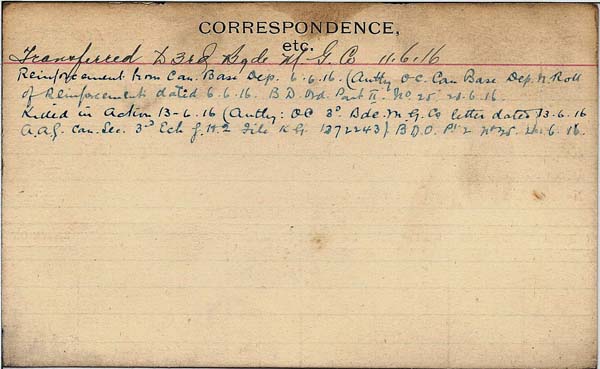 CORRESPONDENCE,
etc.
Transferred D 3rd Bgde M G Co 11.6.16
Reinforcement from Can. Base Dep. 6.6.16. (Authy O.C. Can Base Dep. N. Roll
of Reinforcements dated 6.6.16. B.D. Ord. Part II. No 25. 20.6.16.
Killed in Action 13-6-16 (Authy: OC 3rd Bde. M.G. Co letter dated 13.6.16
A.A.G. Can. Sec. 3rd Ech G.H.Q File K G. 1372243) B D.O. Pt 2 No 25. 20.6.16.